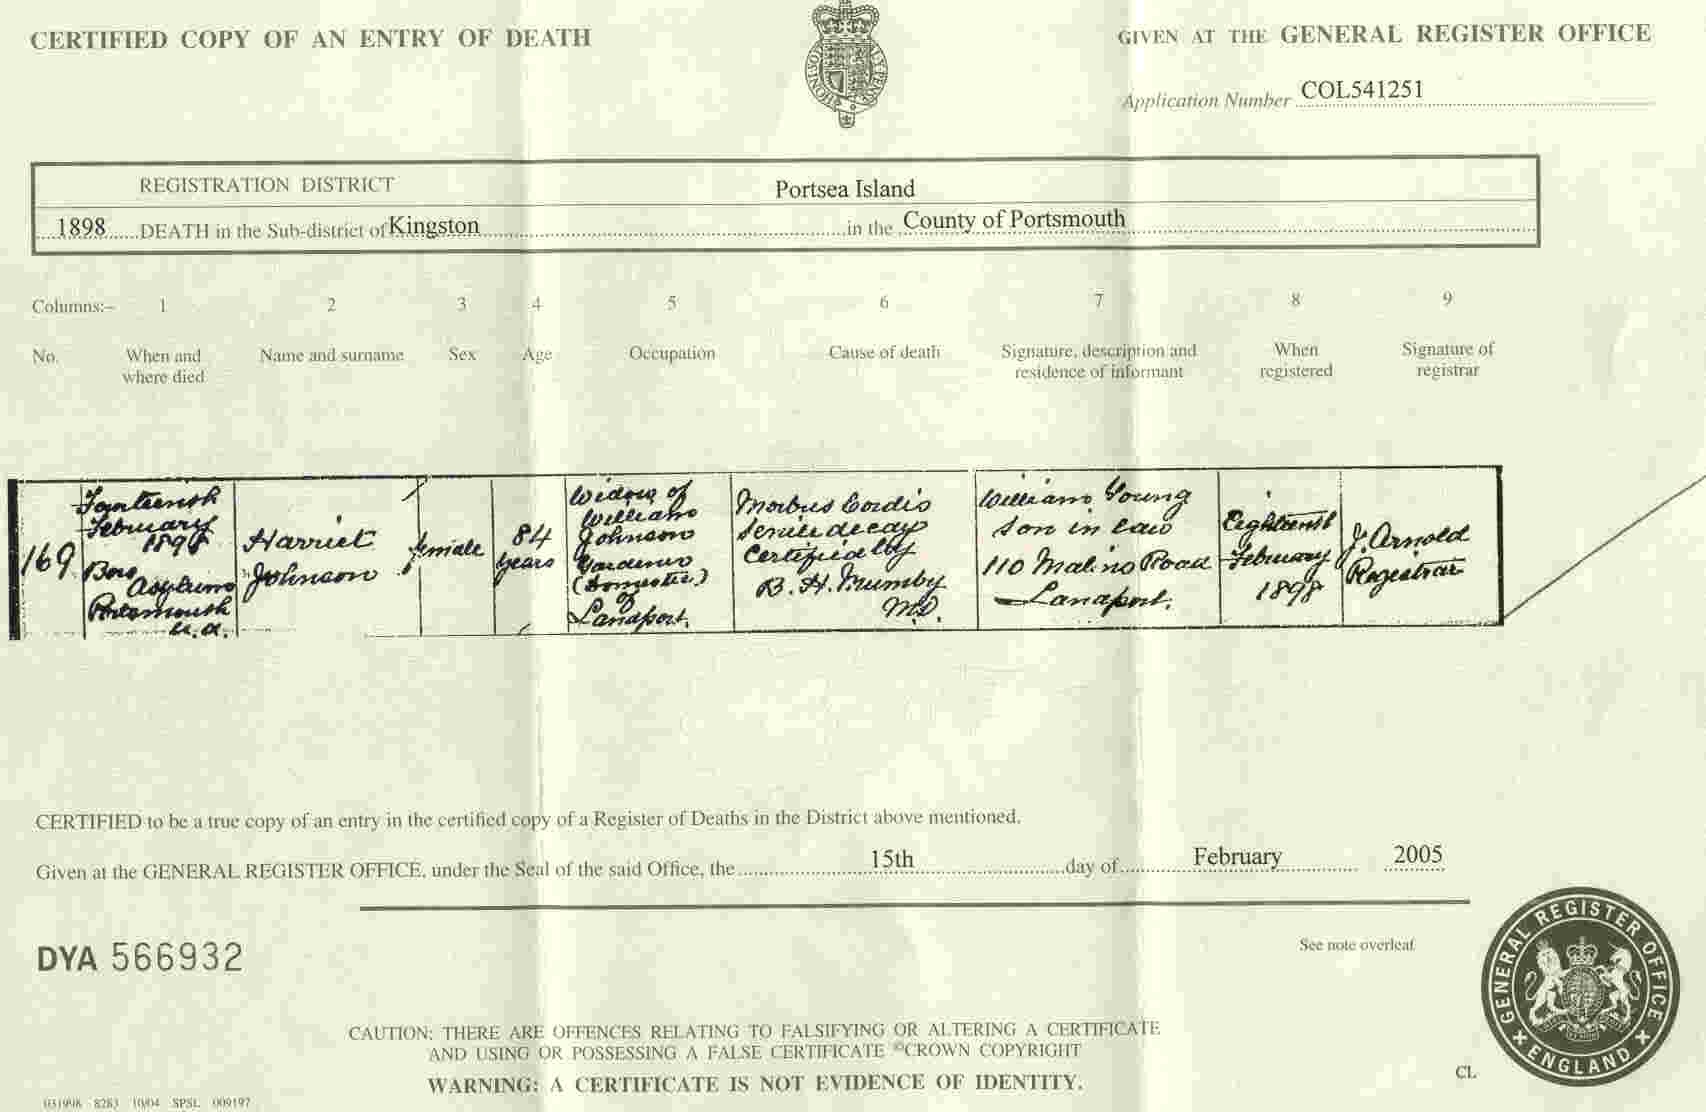 CERTIFIED COPY OF AN ENTRY OF DEATH
GIVEN AT THE GENERAL REGISTER OFFICE
Application Number COL541251
REGISTRATION DISTRICT Portsea Island
1898 DEATH in the Sub-district of Kingston in the County of Portsmouth
Columns:– 1 2 3 4 5 6 7 8 9
No.
When and
where died
Name and surname
Sex
Age
Occupation
Cause of death
Signature, description and
residence of informant
When
registered
Signature of
registrar
169
Fourteenth
February
1898
Boro
Asylum
Portsmouth
U.A.
Harriet
Johnson
female
84
years
Widow of
William
Johnson
Gardener
(Domestic)
of
Landport.
Morbus Cordis
Senile decay
Certified by
B. H. Mumby
M.D.
William Young
son in law
110 Malins Road
Landport.
Eighteenth
February
1898
J. Arnold
Registrar
CERTIFIED to be a true copy of an entry in the certified copy of a Register of Deaths in the District above mentioned.
Given at the GENERAL REGISTER OFFICE, under the Seal of the said Office, the 15th day of February 2005
DYA 566932
See note overleaf
GENERAL REGISTER OFFICE
ENGLAND
CAUTION: THERE ARE OFFENCES RELATING TO FALSIFYING OR ALTERING A CERTIFICATE
AND USING OR POSSESSING A FALSE CERTIFICATE ©CROWN COPYRIGHT
WARNING: A CERTIFICATE IS NOT EVIDENCE OF IDENTITY.
CL
031998 8283 10/04 SPSL 009197